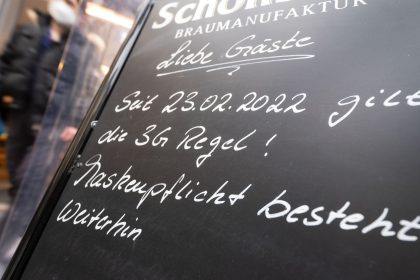 BRAUMANUFAKTUR
Liebe Gäste
Seit 23.02.2022 gilt
die 3G Regel!
Maskenpflicht besteht
Weiterhin